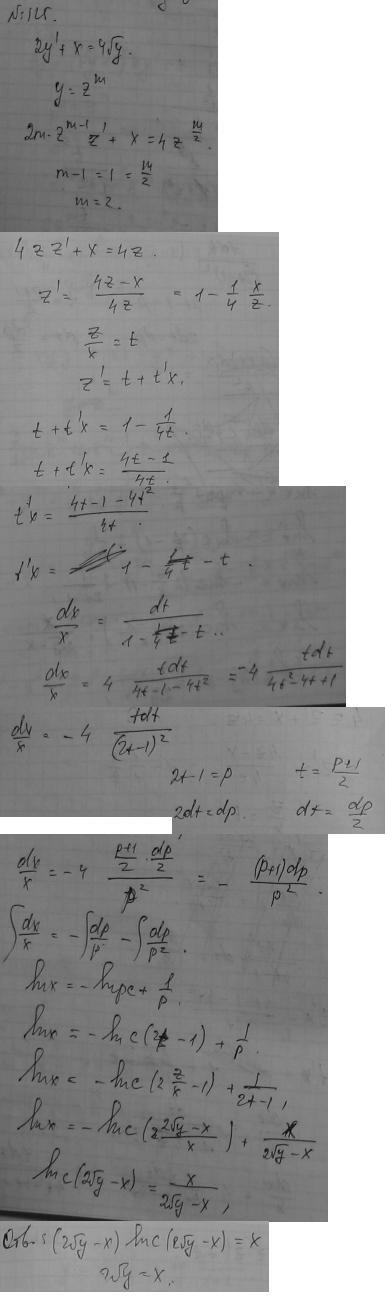 №125.
2y' + x = 4√y.
y = z^m
2m·z^(m-1) z' + x = 4 z^(m/2).
m-1 = 1 = m/2
m = 2.
4 z z' + x = 4z.
z' = (4z-x)/(4z) = 1 - 1/4 x/z.
z/x = t
z' = t + t'x.
t + t'x = 1 - 1/(4t).
t + t'x = (4t-1)/(4t).
t'x = (4t-1-4t²)/(4t).
t'x = 1 - 1/(4t) - t.
dx/x = dt/(1 - 1/(4t) - t)..
dx/x = 4 tdt/(4t-1-4t²) = -4 tdt/(4t²-4t+1)
dx/x = -4 tdt/(2t-1)²
2t-1 = p t = (p+1)/2
2dt = dp. dt = dp/2
dx/x = -4 ((p+1)/2 · dp/2)/p² = - (p+1)dp/p².
∫dx/x = -∫dp/p - ∫dp/p².
lnx = -lnpc + 1/p.
lnx = -lnc(2t-1) + 1/p.
lnx = -lnc(2 z/x - 1) + 1/(2t-1),
lnx = -lnc((2√y-x)/x) + x/(2√y-x)
lnc(2√y-x) = x/(2√y-x),
Отв.: (2√y-x) lnc(2√y-x) = x
2√y = x.